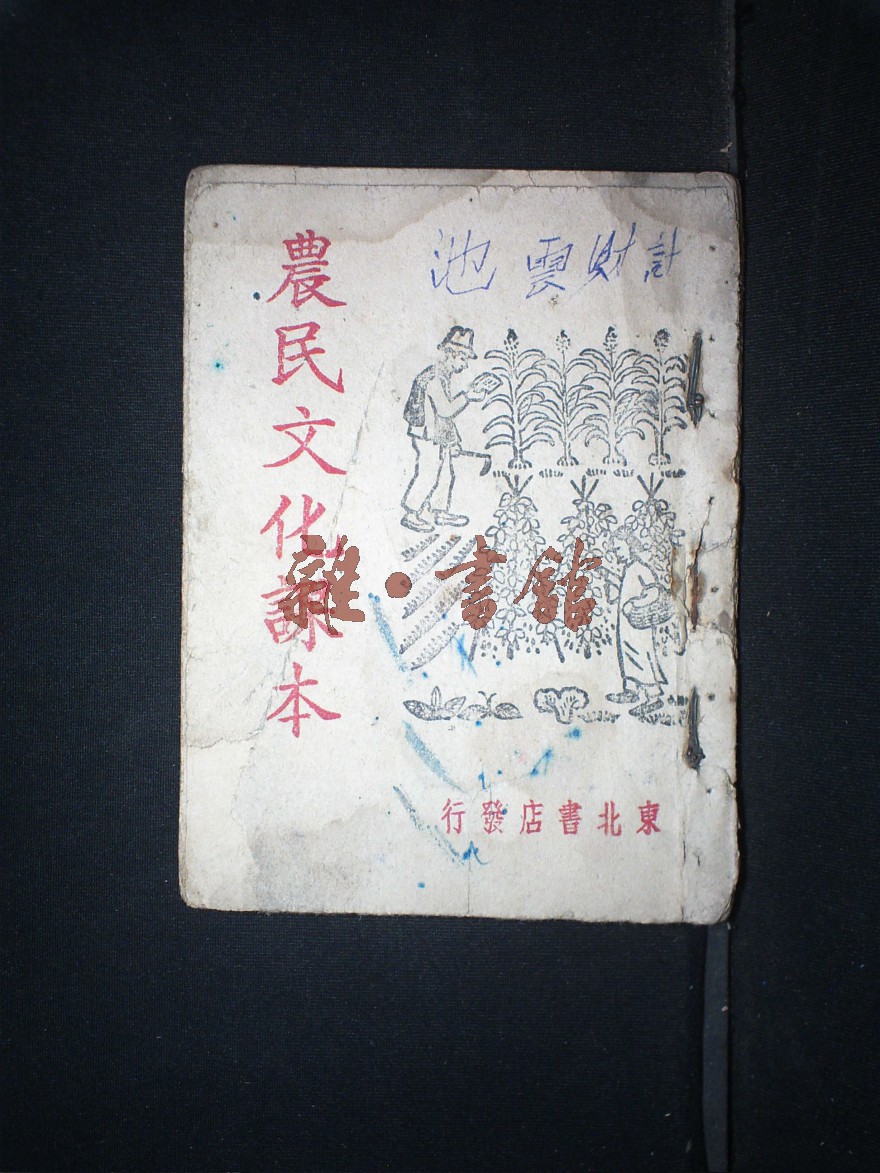 計財雲池
農民文化課本
雜·書館
東北書店發行